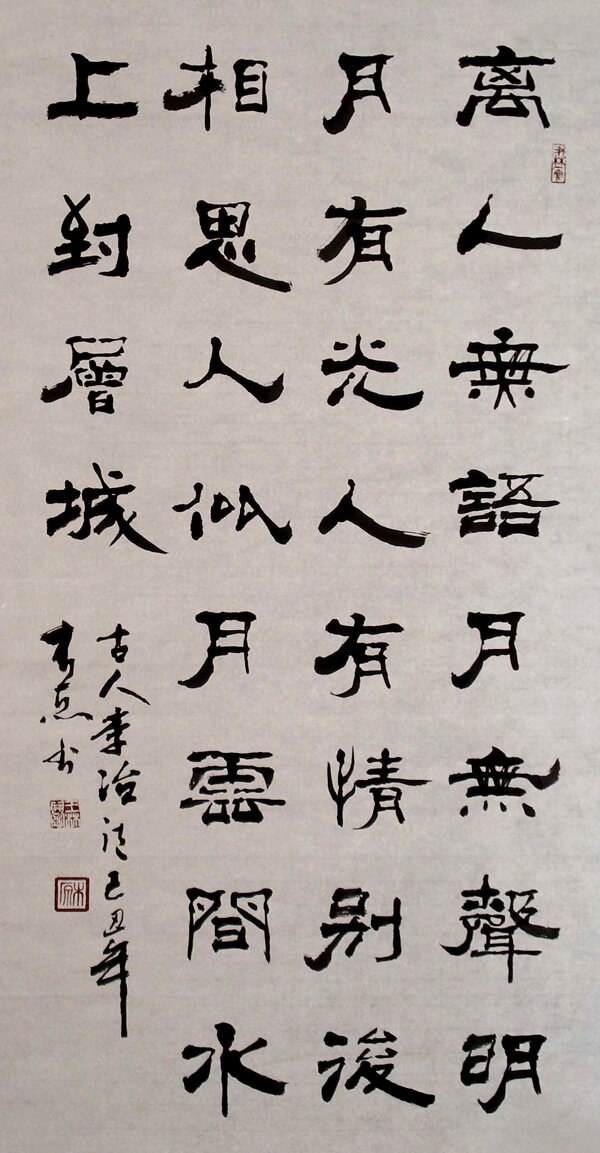 离人無語月無聲明
月有光人有情别後
相思人似月雲間水
上到層城
古人李冶诗己丑年
书